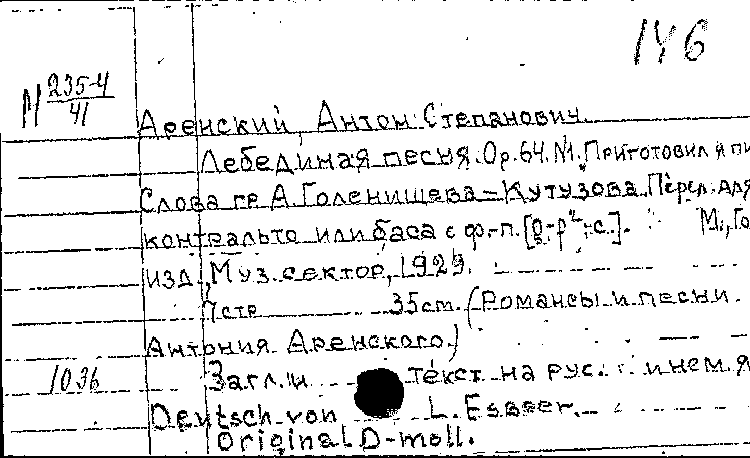 146
М 235-4
41
Аренский, Антон Степанович.
Лебединая песня. Op. 64. №1. „Приготовил я пи
Слова гр А. Голенищева-Кутузова. Перел. для
контральто или баса с ф.-п. М., Го
изд., Муз. сектор, 1929.
7 стр 35 cm. (Романсы и песни
Антония Аренского.)
1036 Загл. и текст на рус. и нем. я
Deutsch von L. Esbeer.
Original D-moll.